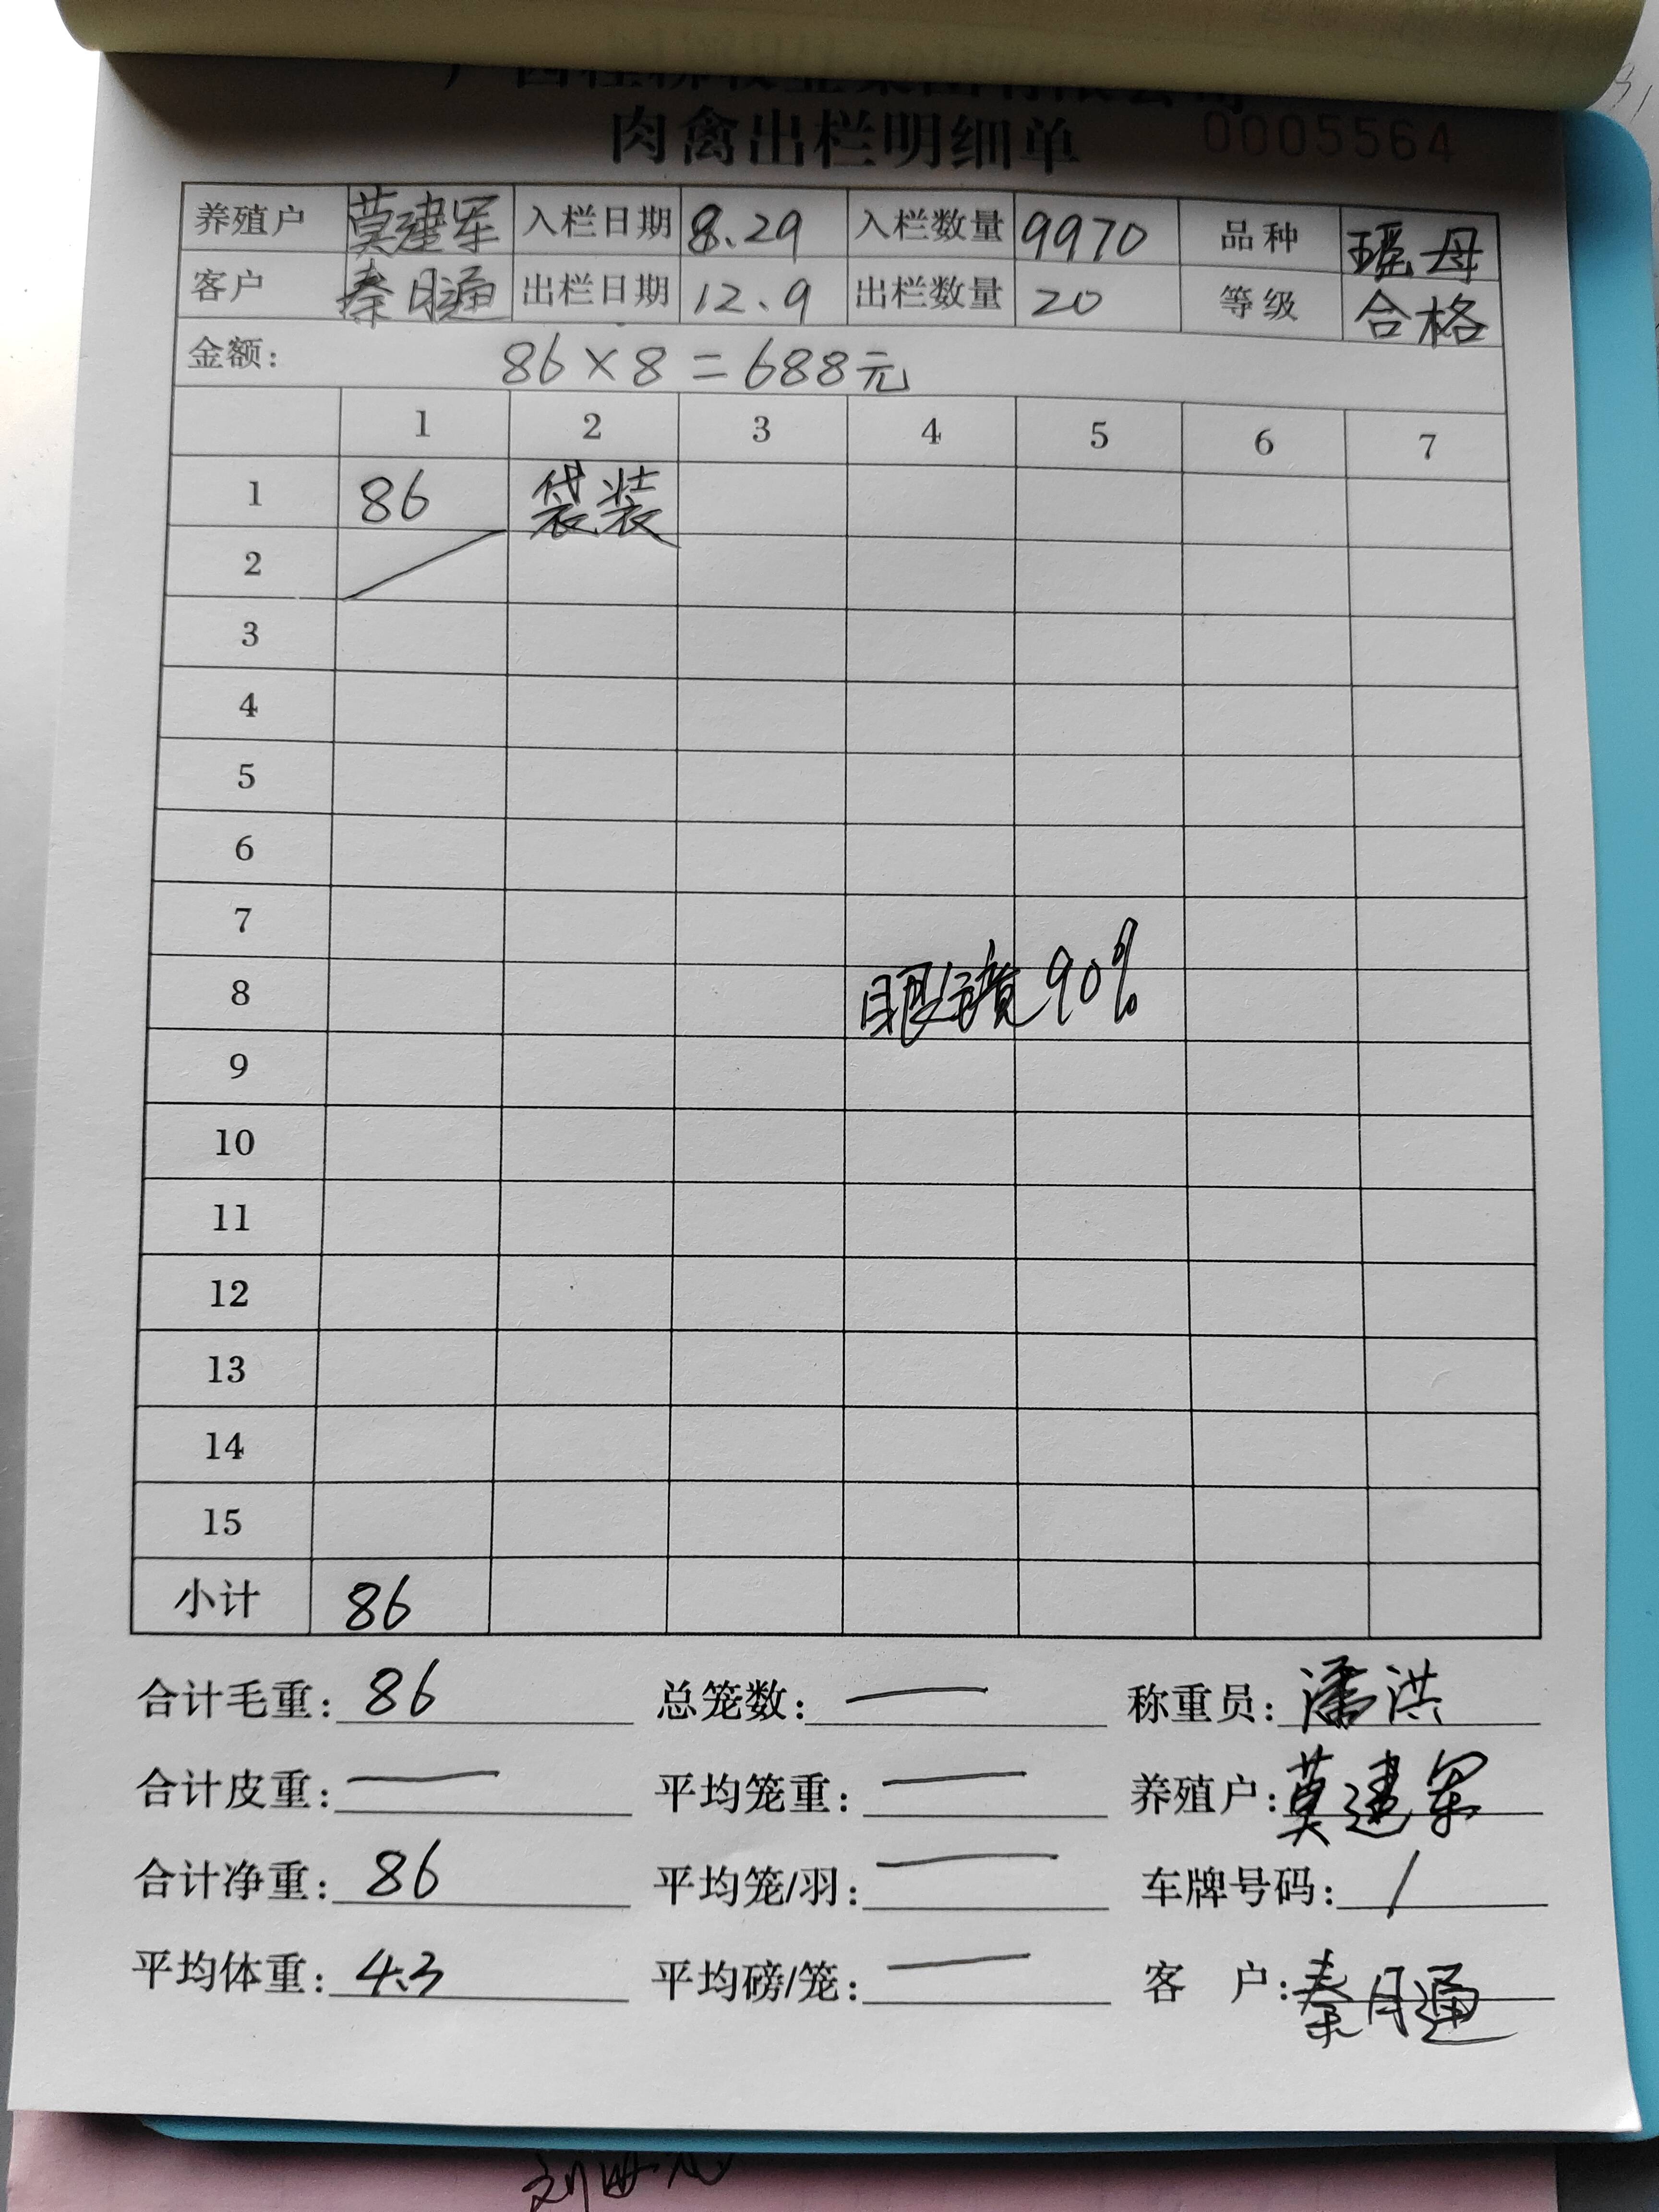 肉禽出栏明细单 0005564
养殖户 莫建军 入栏日期 8.29 入栏数量 9970 品种 瑶母
客户 秦月通 出栏日期 12.9 出栏数量 20 等级 合格
金额: 86×8=688元
1 2 3 4 5 6 7
1 86 袋装
2
3
4
5
6
7
8 眼镜90%
9
10
11
12
13
14
15
小计 86
合计毛重: 86 总笼数: — 称重员: 潘洪
合计皮重: — 平均笼重: — 养殖户: 莫建军
合计净重: 86 平均笼/羽: — 车牌号码: /
平均体重: 4.3 平均磅/笼: — 客 户: 秦月通